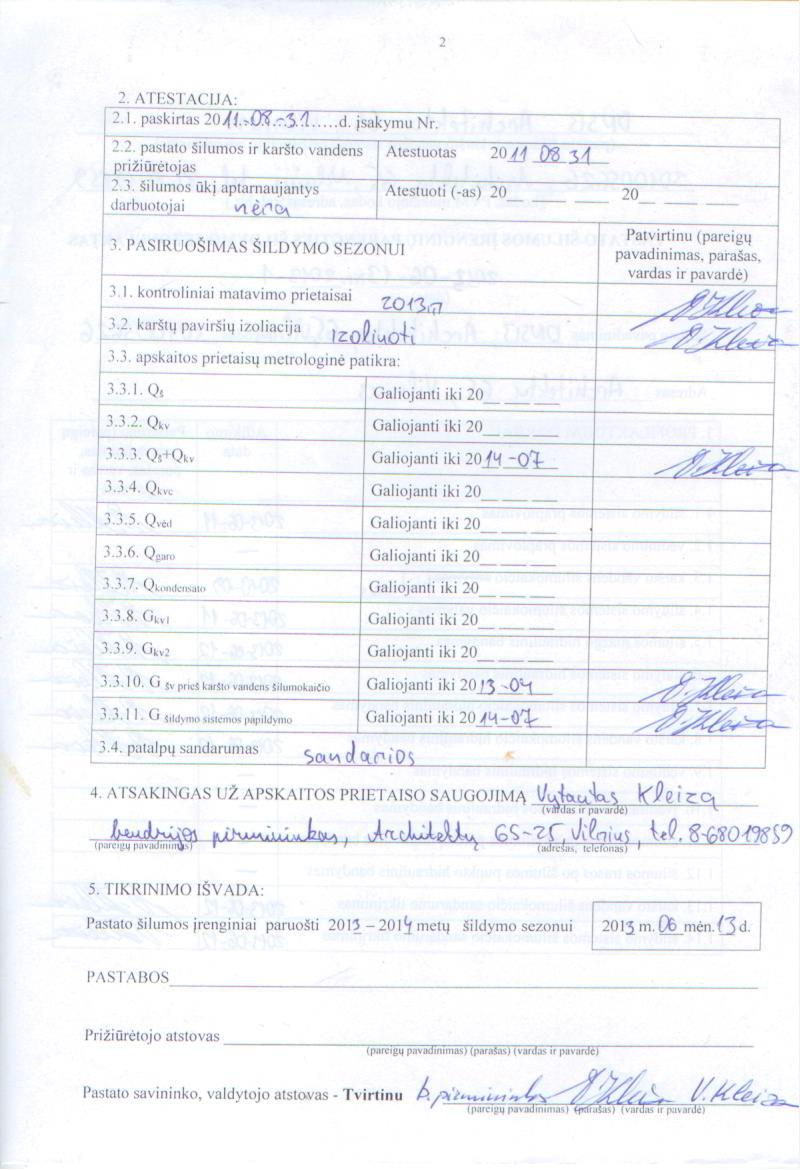 2
2. ATESTACIJA:
2.1. paskirtas 2011-08-31.....d. įsakymu Nr.
2.2. pastato šilumos ir karšto vandens prižiūrėtojas
Atestuotas 2011 08 31
2.3. šilumos ūkį aptarnaujantys darbuotojai nėra
Atestuoti (-as) 20__ __ __ 20__ __ __
3. PASIRUOŠIMAS ŠILDYMO SEZONUI
Patvirtinu (pareigų pavadinimas, parašas, vardas ir pavardė)
3.1. kontroliniai matavimo prietaisai 2013
3.2. karštų paviršių izoliacija izoliuoti
3.3. apskaitos prietaisų metrologinė patikra:
3.3.1. Qš Galiojanti iki 20__ __ __
3.3.2. Qkv Galiojanti iki 20__ __ __
3.3.3. Qš+Qkv Galiojanti iki 2014-07
3.3.4. Qkvc Galiojanti iki 20__ __ __
3.3.5. Qvėd Galiojanti iki 20__ __ __
3.3.6. Qgaro Galiojanti iki 20__ __ __
3.3.7. Qkondensato Galiojanti iki 20__ __ __
3.3.8. Gkv1 Galiojanti iki 20__ __ __
3.3.9. Gkv2 Galiojanti iki 20__ __ __
3.3.10. G šv prieš karšto vandens šilumokaičio Galiojanti iki 2013-04
3.3.11. G šildymo sistemos papildymo Galiojanti iki 2014-07
3.4. patalpų sandarumas sandarios
4. ATSAKINGAS UŽ APSKAITOS PRIETAISO SAUGOJIMĄ Vytautas Kleiza
(vardas ir pavardė)
bendrijos pirmininkas, Architektų 65-25, Vilnius, tel. 8-68019859
(pareigų pavadinimas) (adresas, telefonas)
5. TIKRINIMO IŠVADA:
Pastato šilumos įrenginiai paruošti 2013 – 2014 metų šildymo sezonui 2013 m. 06 mėn. 13 d.
PASTABOS
Prižiūrėtojo atstovas
(pareigų pavadinimas) (parašas) (vardas ir pavardė)
Pastato savininko, valdytojo atstovas - Tvirtinu b. pirmininkas V. Kleiza
(pareigų pavadinimas) (parašas) (vardas ir pavardė)